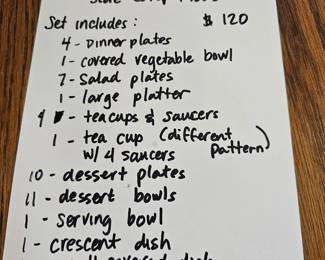 Set includes : $ 120
4 - Dinner plates
1 - covered vegetable bowl
7 - Salad plates
1 - large platter
4 - teacups & saucers
1 - tea cup (different pattern)
w/ 4 saucers
10 - dessert plates
11 - dessert bowls
1 - serving bowl
1 - crescent dish